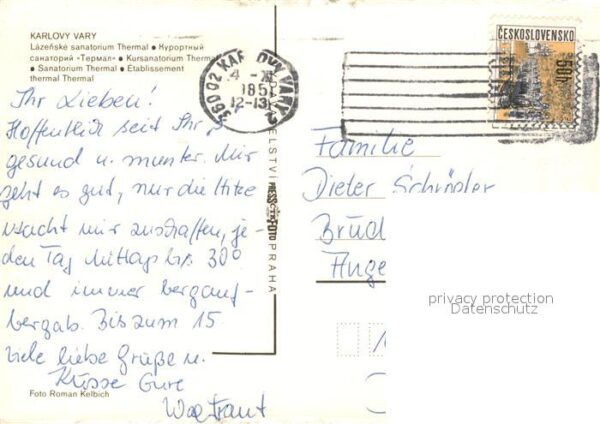 KARLOVY VARY
Lázeňské sanatorium Thermal ● Курортный
санаторий «Термал» ● Kursanatorium Thermal
● Sanatorium Thermal ● Établissement
thermal Thermal
Ihr Lieben!
Hoffentlich seit Ihr
gesund u. munter. Mir
geht es gut, nur die Hitze
macht mir zuschaffen, je-
den Tag Mittag bis 30°
und immer bergauf-
bergab. Bis zum 15
viele liebe Grüße u.
Küsse Eure
Waltraut
Foto Roman Kelbich
PRESSFOTO PRAHA
360 02 KARLOVY VARY 2
85
12-13
ČESKOSLOVENSKO
50h
Familie
Dieter
Brüd
Ange
privacy protection
Datenschutz